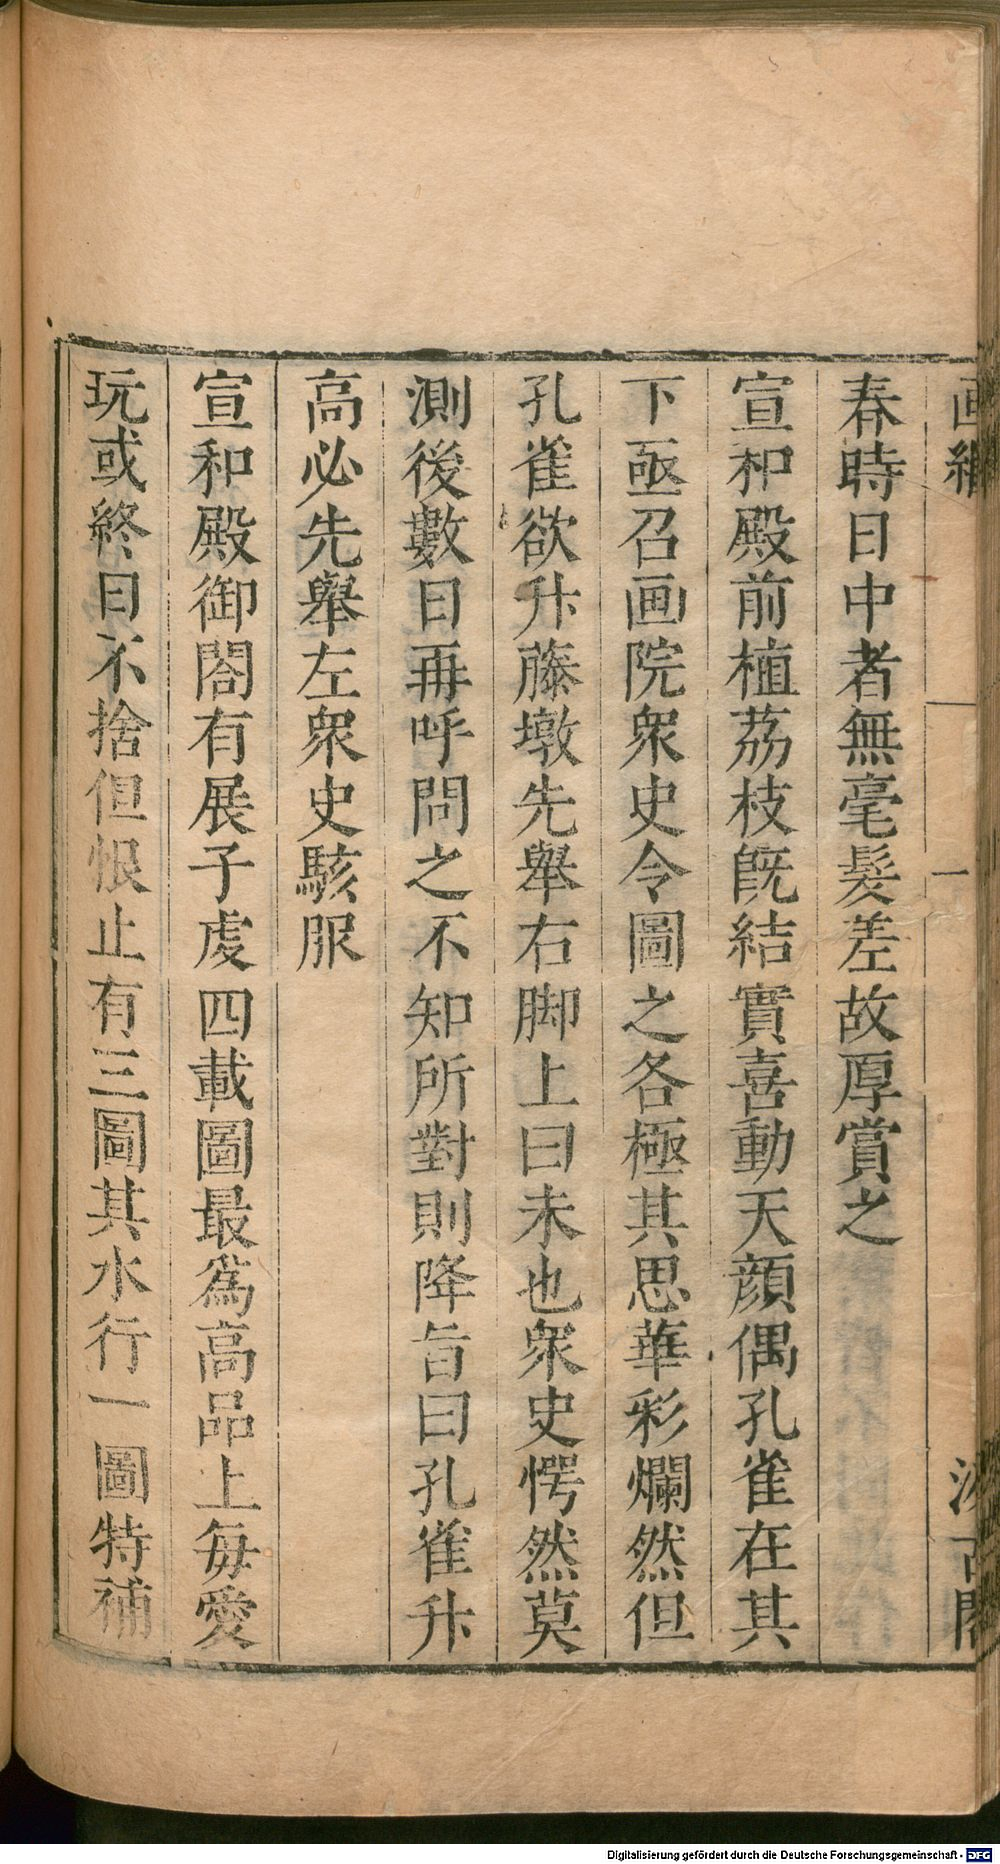 春時日中者無毫髮差故厚賞之
宣和殿前植荔枝旣結實喜動天顔偶孔雀在其
下亟召画院衆史令圖之各極其思華彩爛然但
孔雀欲升藤墩先舉右脚上曰未也衆史愕然莫
測後數日再呼問之不知所對則降旨曰孔雀升
高必先舉左衆史駭服
宣和殿御閣有展子虔四載圖最爲高品上每愛
玩或終日不捨但恨止有三圖其水行一圖特補
画繼
一
汲古閣
Digitalisierung gefördert durch die Deutsche Forschungsgemeinschaft - DFG